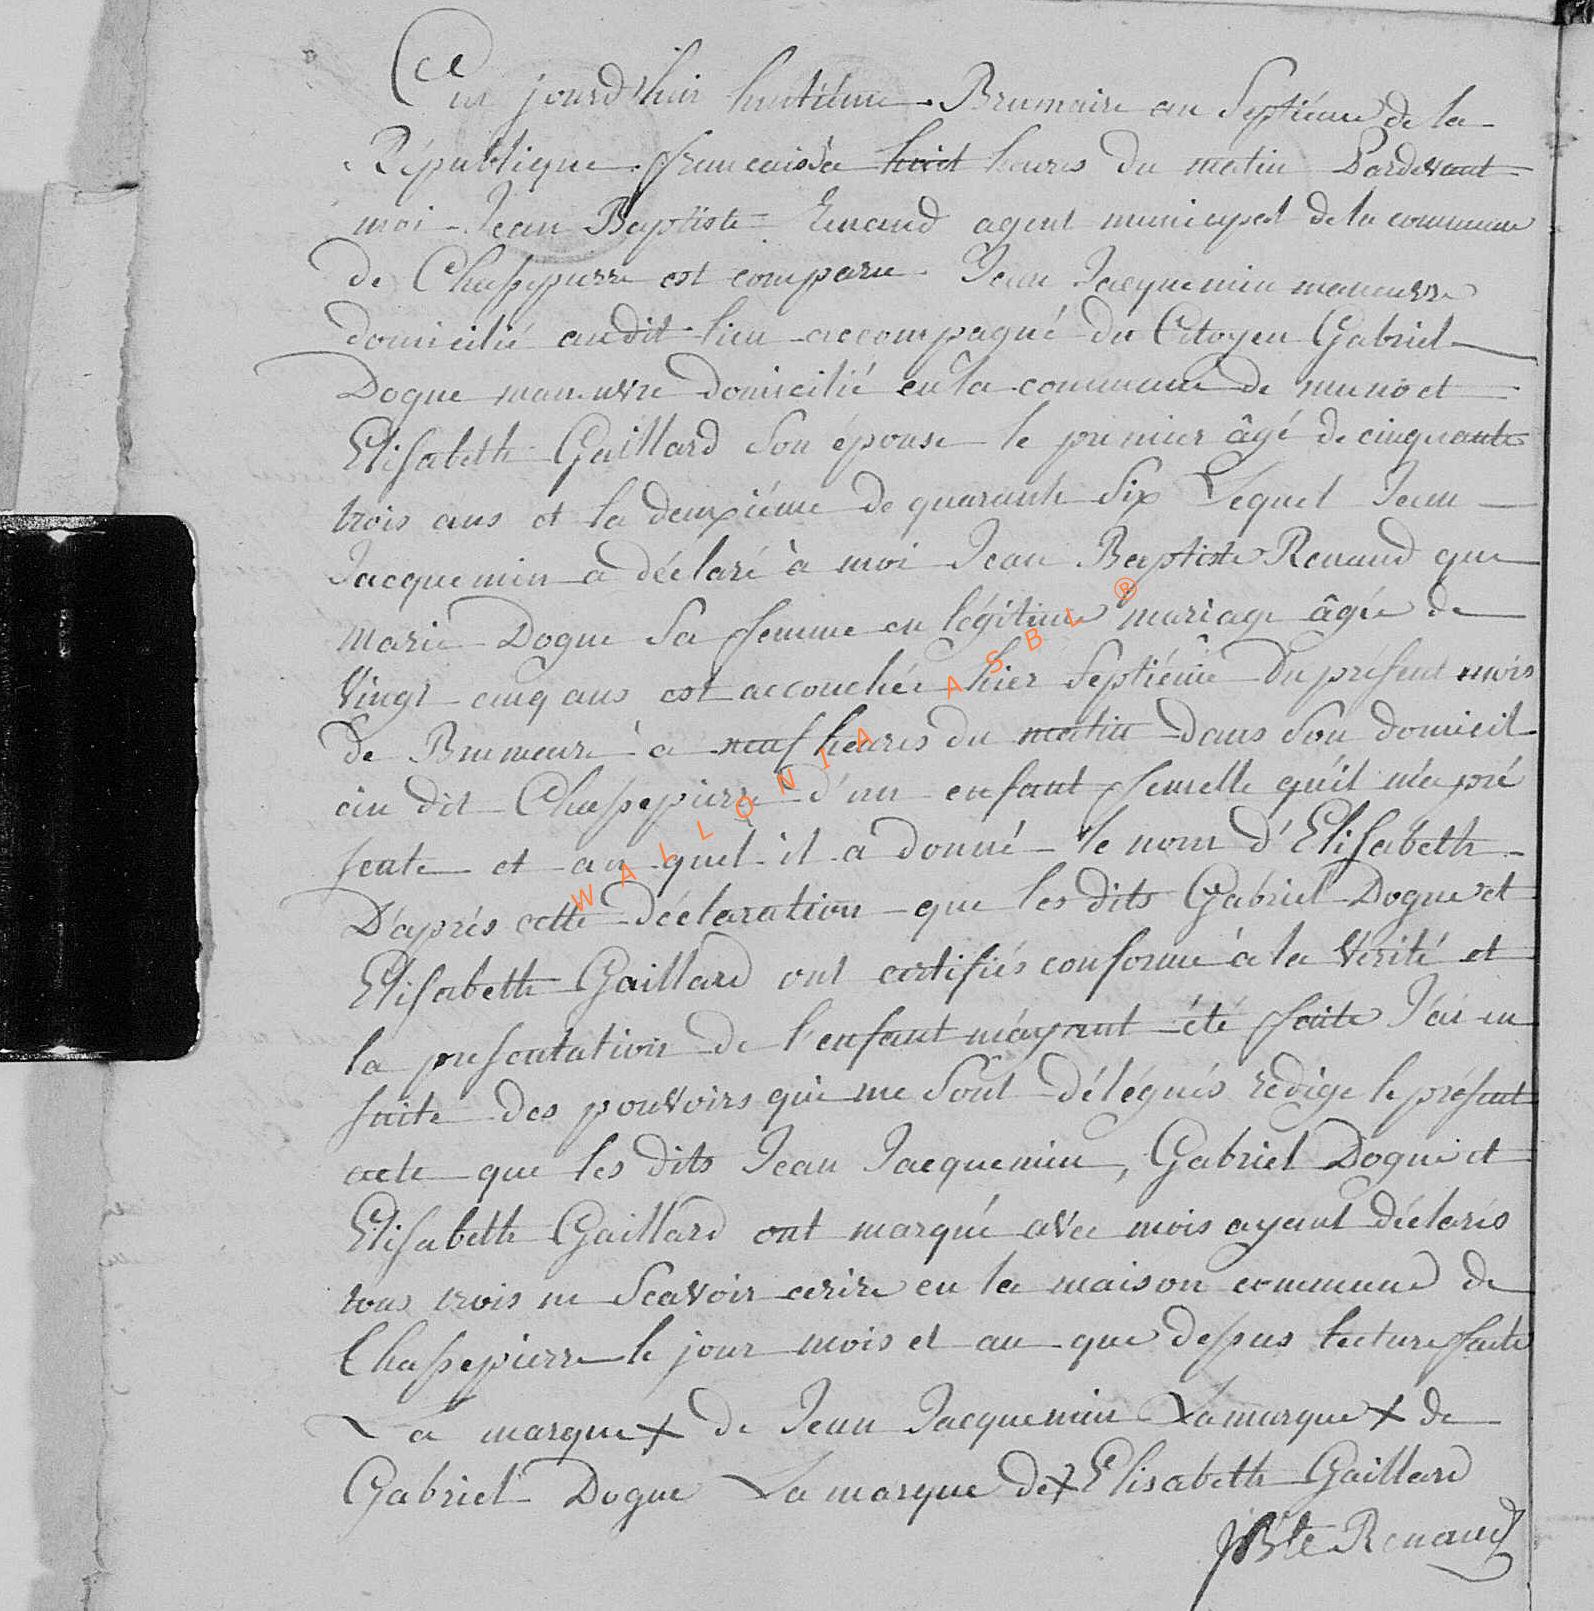 Ce jourd'hui huitiéme Brumaire an Septiéme de la
République francaise à huit heures du matin Pardevant
moi Jean Baptiste Renaud agent municipal de la commune
de Chassepierre est comparu Jean Jacquemin manuvre
domicilié audit lieu accompagné du Citoyen Gabriel
Dogue manuvre domicilié en la commune de muno et
Elisabeth Gaillard Son épouse le premier âgé de cinquante
trois ans et la deuxiéme de quarante Six Lequel Jean
Jacquemin a déclaré à moi Jean Baptiste Renaud que
marie Dogue Sa femme en légitime mariage âgée de
Vingt cinq ans est accouchée hier Septiéme du présent mois
de Brumaire à neuf heures du matin dans Son domicil
au dit Chassepierre d'un enfant femelle qu'il m'a pré
senté et au quel il a donné le nom d'Elisabeth
D'après cette déclaration que les dits Gabriel Dogue et
Elisabeth Gaillard ont certifiés conforme à la Vérité et
la presentation de l'enfant m'ayant été faite J'ai en
suite des pouvoirs qui me Sont délégués redigé le présent
acte que les dits Jean Jacquemin, Gabriel Dogue et
Elisabeth Gaillard ont marqué avec mois ayant déclarés
tous trois ne Scavoir ecrire en la maison commune de
Chassepierre le jour mois et an que dessus lecture faite
La marque + de Jean Jacquemin La marque + de
Gabriel Dogue La marque de + Elisabeth Gaillard
JBte Renaud
WALLONIA ASBL ®